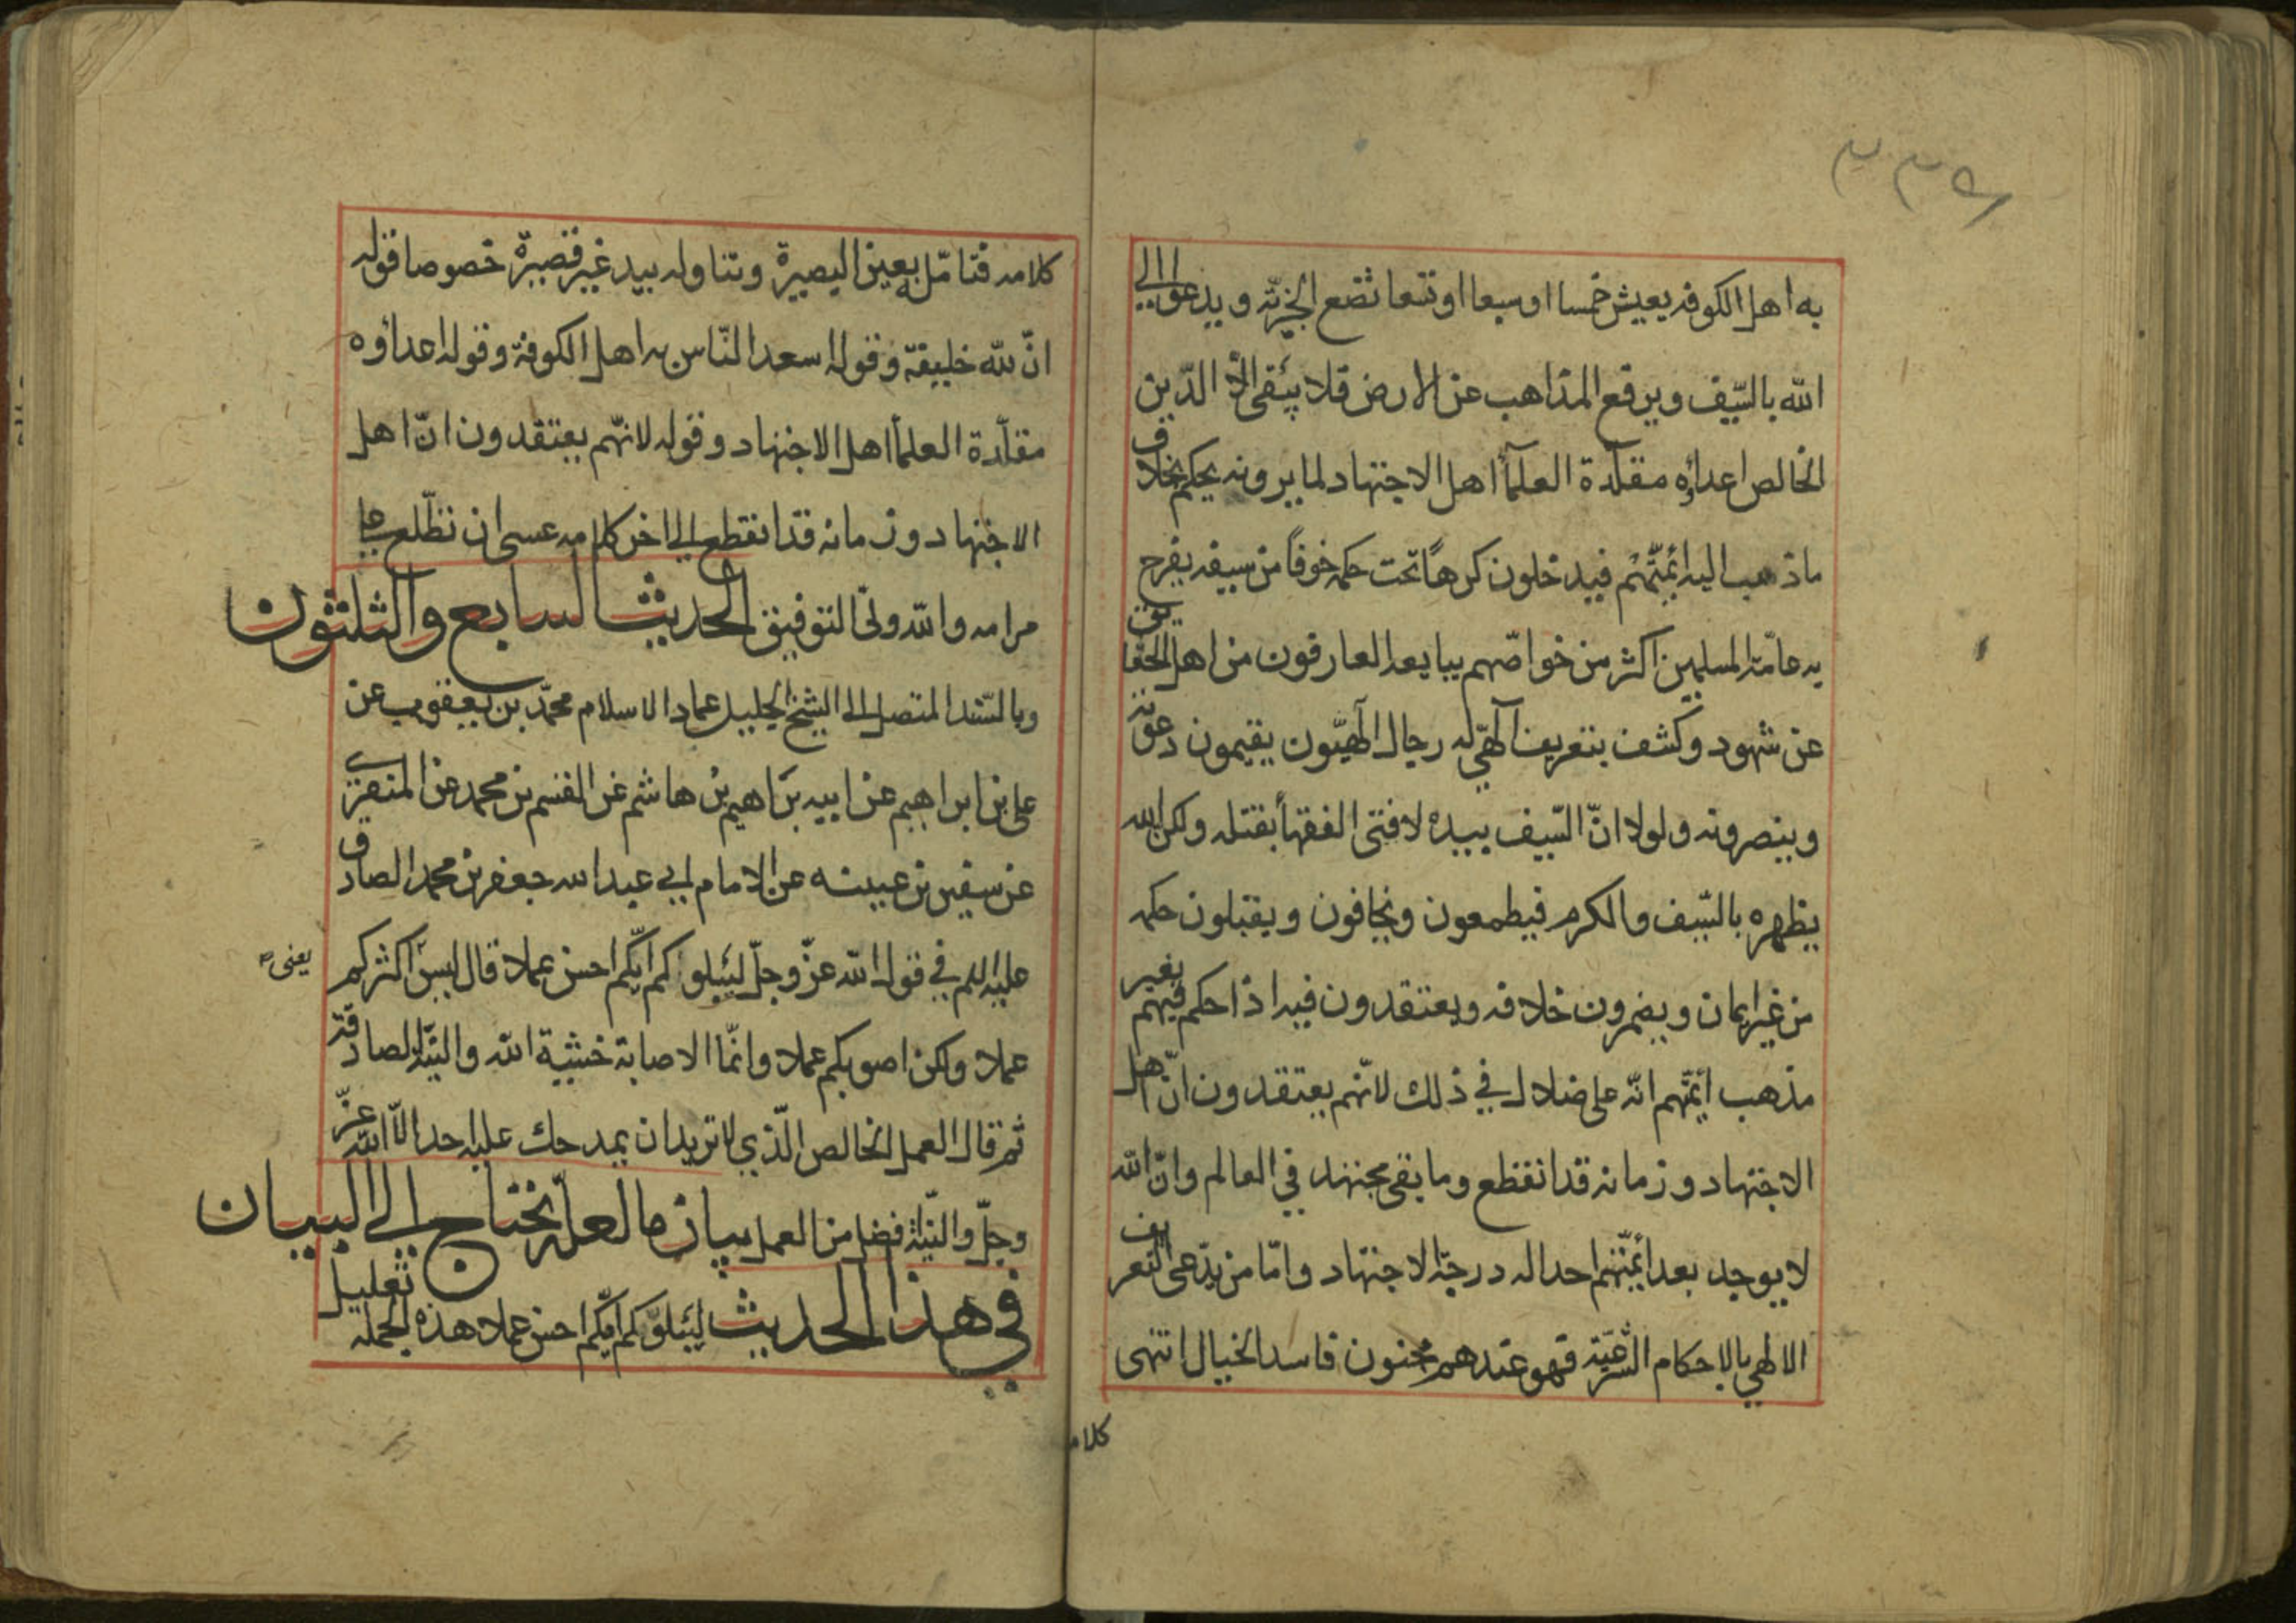 ٢٣٩
به اهل الكوفه يعيش خمسا اوسبعا اوتسعا تضع الجزيّة ويدعوا الي
الله بالسّيف ويرفع المذاهب عن الارض فلا يبقى الّا الدّين
الخالص اعداؤه مقلّدة العلمآء اهل الاجتهاد لما يرونه يحكم بخلاف
ما ذهب اليه ائمّتهم فيدخلون كرهاً تحت حكمه خوفاً من سيفه يفرح
به عامّة المسلمين اكثر من خواصّهم يبايعه العارفون من اهل الحقايق
عن شهود وكشف بتعريف آلهّي له رجال آلهيّون يقيمون دعوته
وينصرونه ولولا انّ السّيف بيده لافتى الفقهاء بقتله ولكن الله
يظهره بالسّيف والكرم فيطمعون ويخافون ويقبلون حكمه
من غير ايمان ويضمرون خلافه ويعتقدون فيه اذا حكم فيهم بغير
مذهب أيمّتهم انّه على ضلال في ذلك لانّهم يعتقدون انّ اهل
الاجتهاد وزمانه قد انقطع وما بقى مجتهد في العالم وانّ الله
لا يوجد بعد أيمّتهم احدا له درجة الاجتهاد وامّا من يدّعى التعريف
الالهي بالاحكام الشّرعيّة فهو عندهم مجنون فاسد الخيال انتهى
كلامه
كلامه فتامّل بعين البصيرة وتناوله بيد غير قصيرة خصوصا قوله
انّ لله خليفة وقوله اسعد النّاس به اهل الكوفة وقوله اعداؤه
مقلّدة العلمآء اهل الاجتهاد وقوله لانّهم يعتقدون انّ اهل
الاجتهاد وزمانه قد انقطع الى اخر كلامه عسى ان تطّلع على
مرامه والله ولىّ التوفيق الحديث السابع والثلثون
وبالسّند المتصل الى الشيخ الجليل عماد الاسلام محمّد بن يعقوب عن
على بن ابراهيم عن ابيه برَاهيم بْن هاشم عن القسم بن محمد عن المنقرى
عن سفين بن عيينه عن الامام ابي عبد الله جعفر بن محمد الصادق
عليه السلم في قول الله عزّ وجلّ ليبلوكم ايّكم احسن عملا قال ليس اكثركم
يعنى
عملا ولكن اصوبكم عملا وانّما الاصابة خشية الله والنيّة الصادقة
ثم قال العمل الخالص الّذي لا تريد ان يمدحك عليه احد الّا الله عزّ
وجلّ والنيّة افضل من العمل بيان ما لعلّه يحتاج الى البيان
في هذا الحديث ليبلوكم ايّكم احسن عملا هذه الجمله تعليل